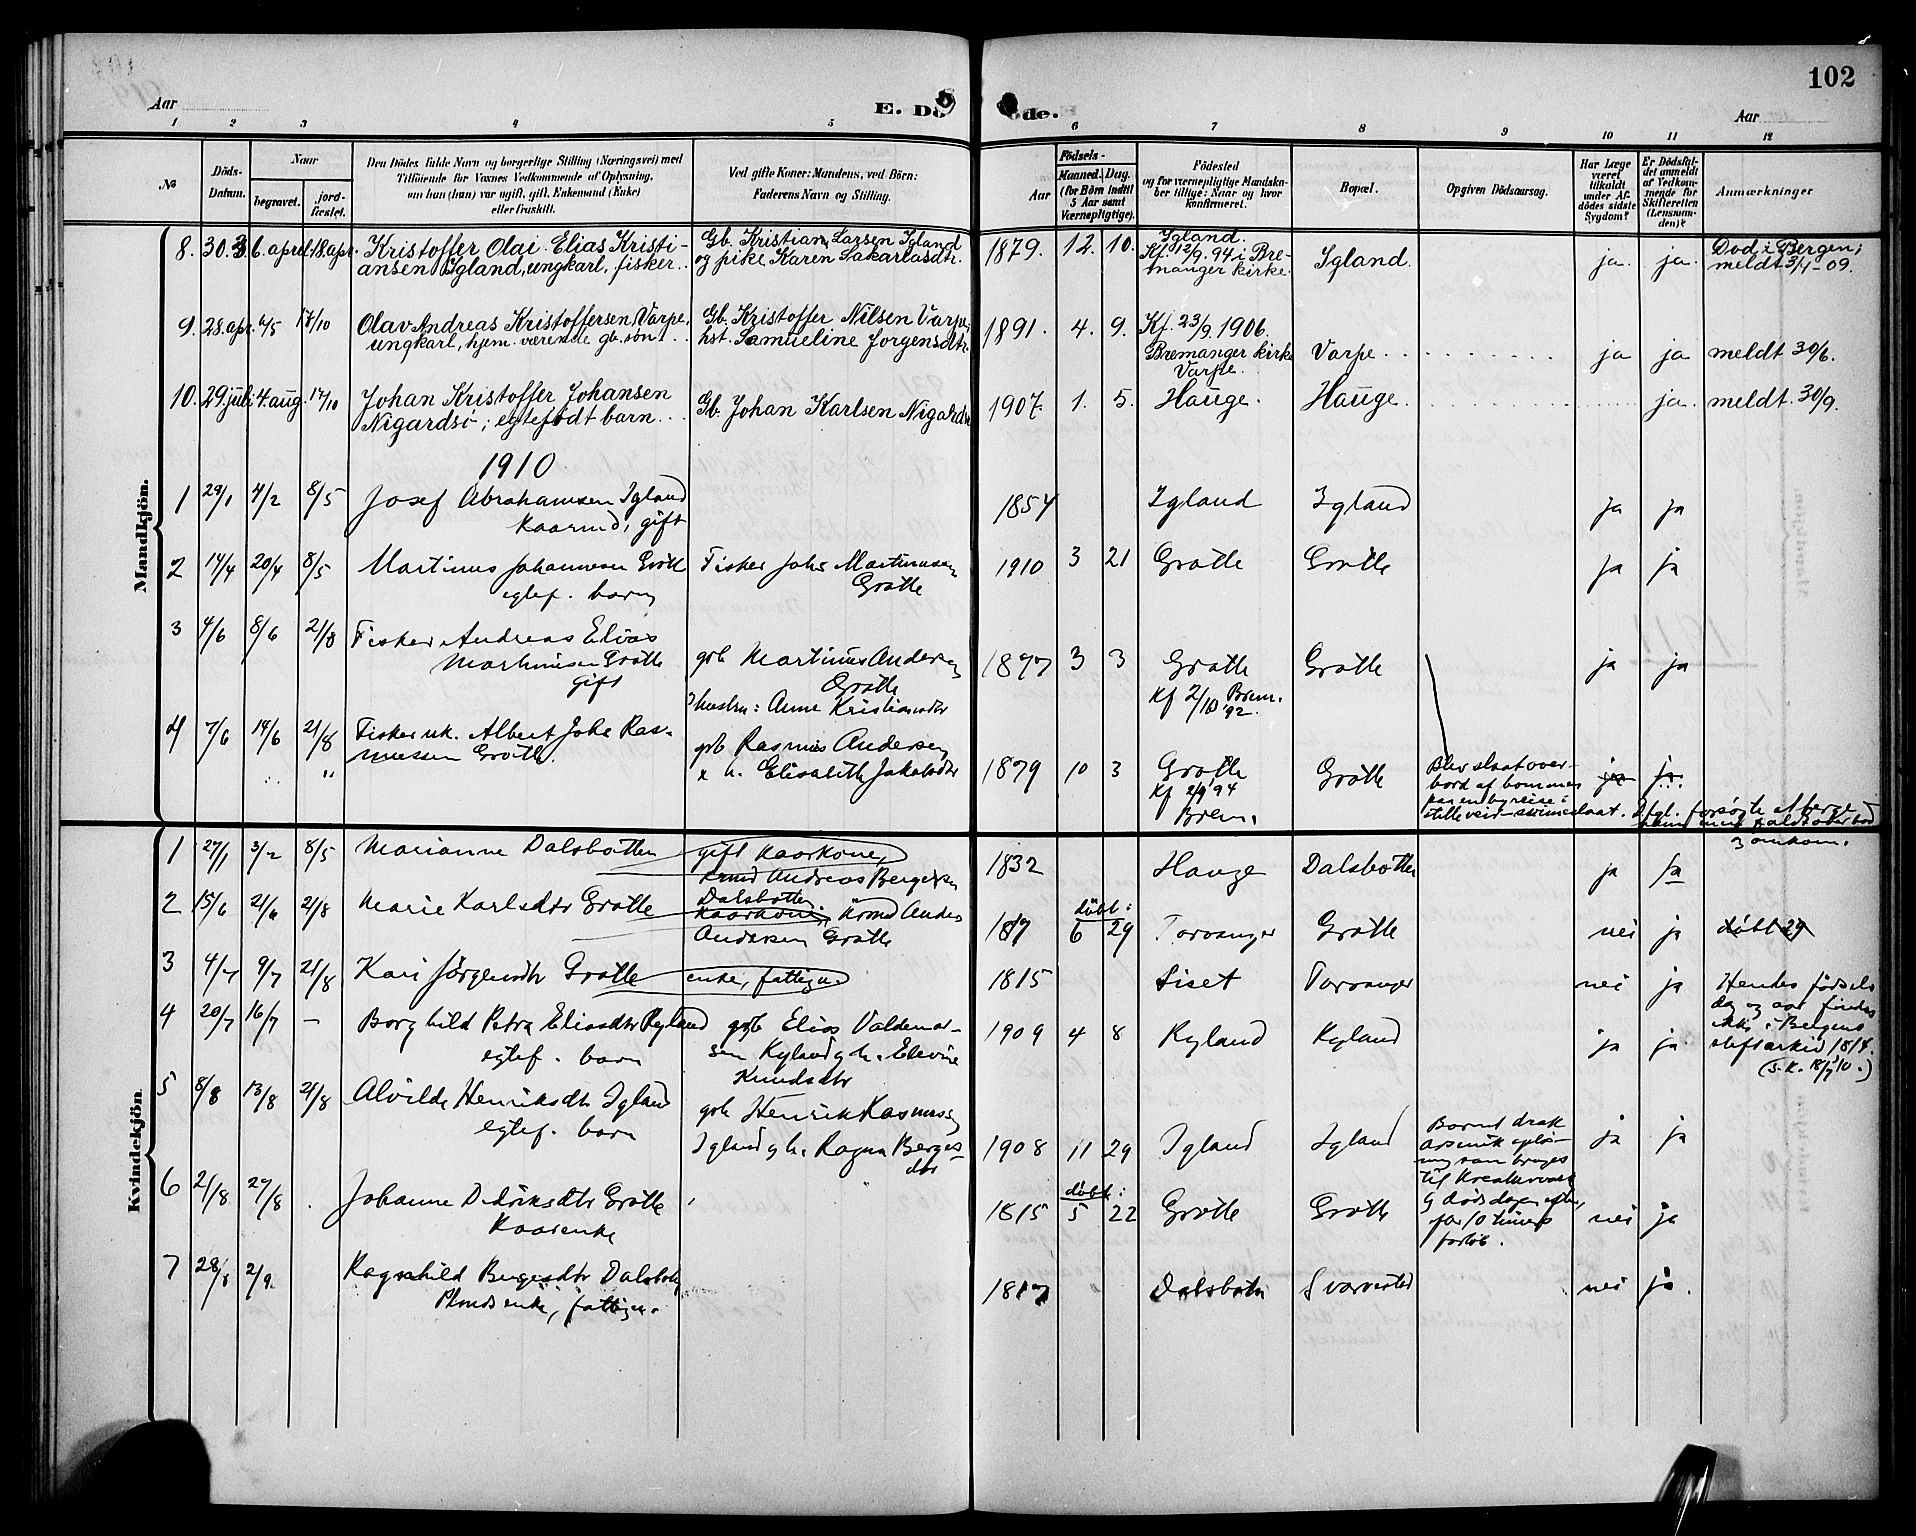 102
Aar
E. Dö de.
Aar
1 2 3 4 5 6 7 8 9 10 11 12
№
Döds-Datum.
Naar
begravet.
jord-fæstet.
Den Dödes fulde Navn og borgerlige Stilling (Næringsvei) med
Tilföiende for Voxnes Vedkommende af Oplysning,
om hun (han) var ugift, gift, Enkemand (Enke)
eller fraskilt.
Ved gifte Koner: Mandens, ved Börn:
Faderens Navn og Stilling.
Födsels-
Aar
Maaned. Dag.
(for Börn indtil
5 Aar samt
Værnepligtige).
Födested
og for værnepligtige Mandska-
ber tillige: Naar og hvor
konfirmeret.
Bopæl.
Opgiven Dödsaarsag.
Har Læge
været
tilkaldt
under Af-
dödes sidste
Sygdom?
Er Dödsfal-
det anmeldt
af Vedkom-
mende for
Skifteretten
(Lensman-
den)?
Anmærkninger
Mandkjön.
8. 30.3. 6. april 18. apr. Kristoffer Olai Elias Kristi- Gb. Kristian Larsen Igland 1879. 12. 10. Igland. Igland. ja. ja. Död i Bergen;
ansen Igland, ungkarl, fisker.. og pike Karen Sakariasdtr. Kf. 12/9. 94 i Bre- meldt 3/4-09.
manger kirke.
9. 28. apr. 6/5 17/10 Olav Andreas Kristoffersen Varpe, Gb. Kristoffer Nilsen Varpe, 1891. 4. 9. Kf. 23/9. 1906.
ungkarl, hjem. værende gb. søn. hst. Samueline Jørgensdtr. Bremanger kirke Varpe. ja ja meldt 30/6.
Varpe.
10. 29 juli 4. aug. 17/10 Johan Kristoffer Johansen Gb. Johan Karlsen Nigardsö 1907. 1. 5. Hauge. Hauge. ja. meldt 30/9.
Nigardsö; egtefödt barn..
1910
1 29/1 4/2 8/5 Josef Abrahamsen Igland 1854 Igland Igland ja ja
Kaarmd, gift
2 14/4 20/4 8/5 Martinus Johannesen Grötle Fisker Johs Martinusen 1910 3 21 Grotle Grotle ja ja
egtef. barn Grotle
3 4/6 8/6 21/8 Fisker Andreas Elias
Martinusen Grotle gb. Martinus Andersen 1877 3 3 Grotle Grotle ja ja
gift Grotle Kf 2/10 Brem.
Hustru: Anne Kristiansdtr '92.
4 7/6 14/6 21/8 Fisker uk. Albert Johs Ras- gb Rasmus Andersen
musen Grotle. h. Elisabeth Jakobsdtr 1879 10 3 Grotle Grotle Blev slaat over-
Kf 2/9 '94 bord af bommen
Brem. paa en byreise i
stille veir - svimeslaat. forsøgte at berge
omkom.
Kvindekjön.
1 27/1 3/2 8/5 Marianne Dalsbotten gift kaarkone, 1832 Hauge Dalsbotten ja ja
Andreas Bergersen
Dalsbotten
2 15/6 21/6 21/8 Marie Karlsdtr Grotle kaarkone, Anders døbt: 6 29 Torvanger Grotle nei ja døbt 29
Andersen Grotle
3 4/7 9/7 21/8 Kari Jørgensdtr Grotle enke, fattigu. 1815 Liset Torvanger nei ja Hendes födsels
dag og aar findes
ikke i Bergens
stiftarkiv 1814.
(S.K. 18/7 10.)
4 20/7 16/7 - Borghild Petra Eliasdtr Ryland gb Elias Valdemar- 1909 4 8 Ryland Ryland ja ja
egtef. barn sen Rylandg h. Elevine
Knudsdtr
5 8/8 13/8 21/8 Alvilde Henriksdtr Igland gb Henrik Rasmussen
egtef. barn Igland g h. Ragna Berges- 1908 11 29 Igland Igland ja ja
dtr
Barnet drak
arsenik opløs-
ning som bruges
til kreaturvask
og døde dagen efter,
før 10 timers
forløb.
6 21/8 27/8 Johanne Didriksdtr Grotle 1815 døbt: 5 22 Grotle Grotle nei ja
Kaarenke
7 28/8 2/9. Ragnhild Bergesdtr Dalsbotn 1817 Dalsbotn nei ja.
enke, fattigu.